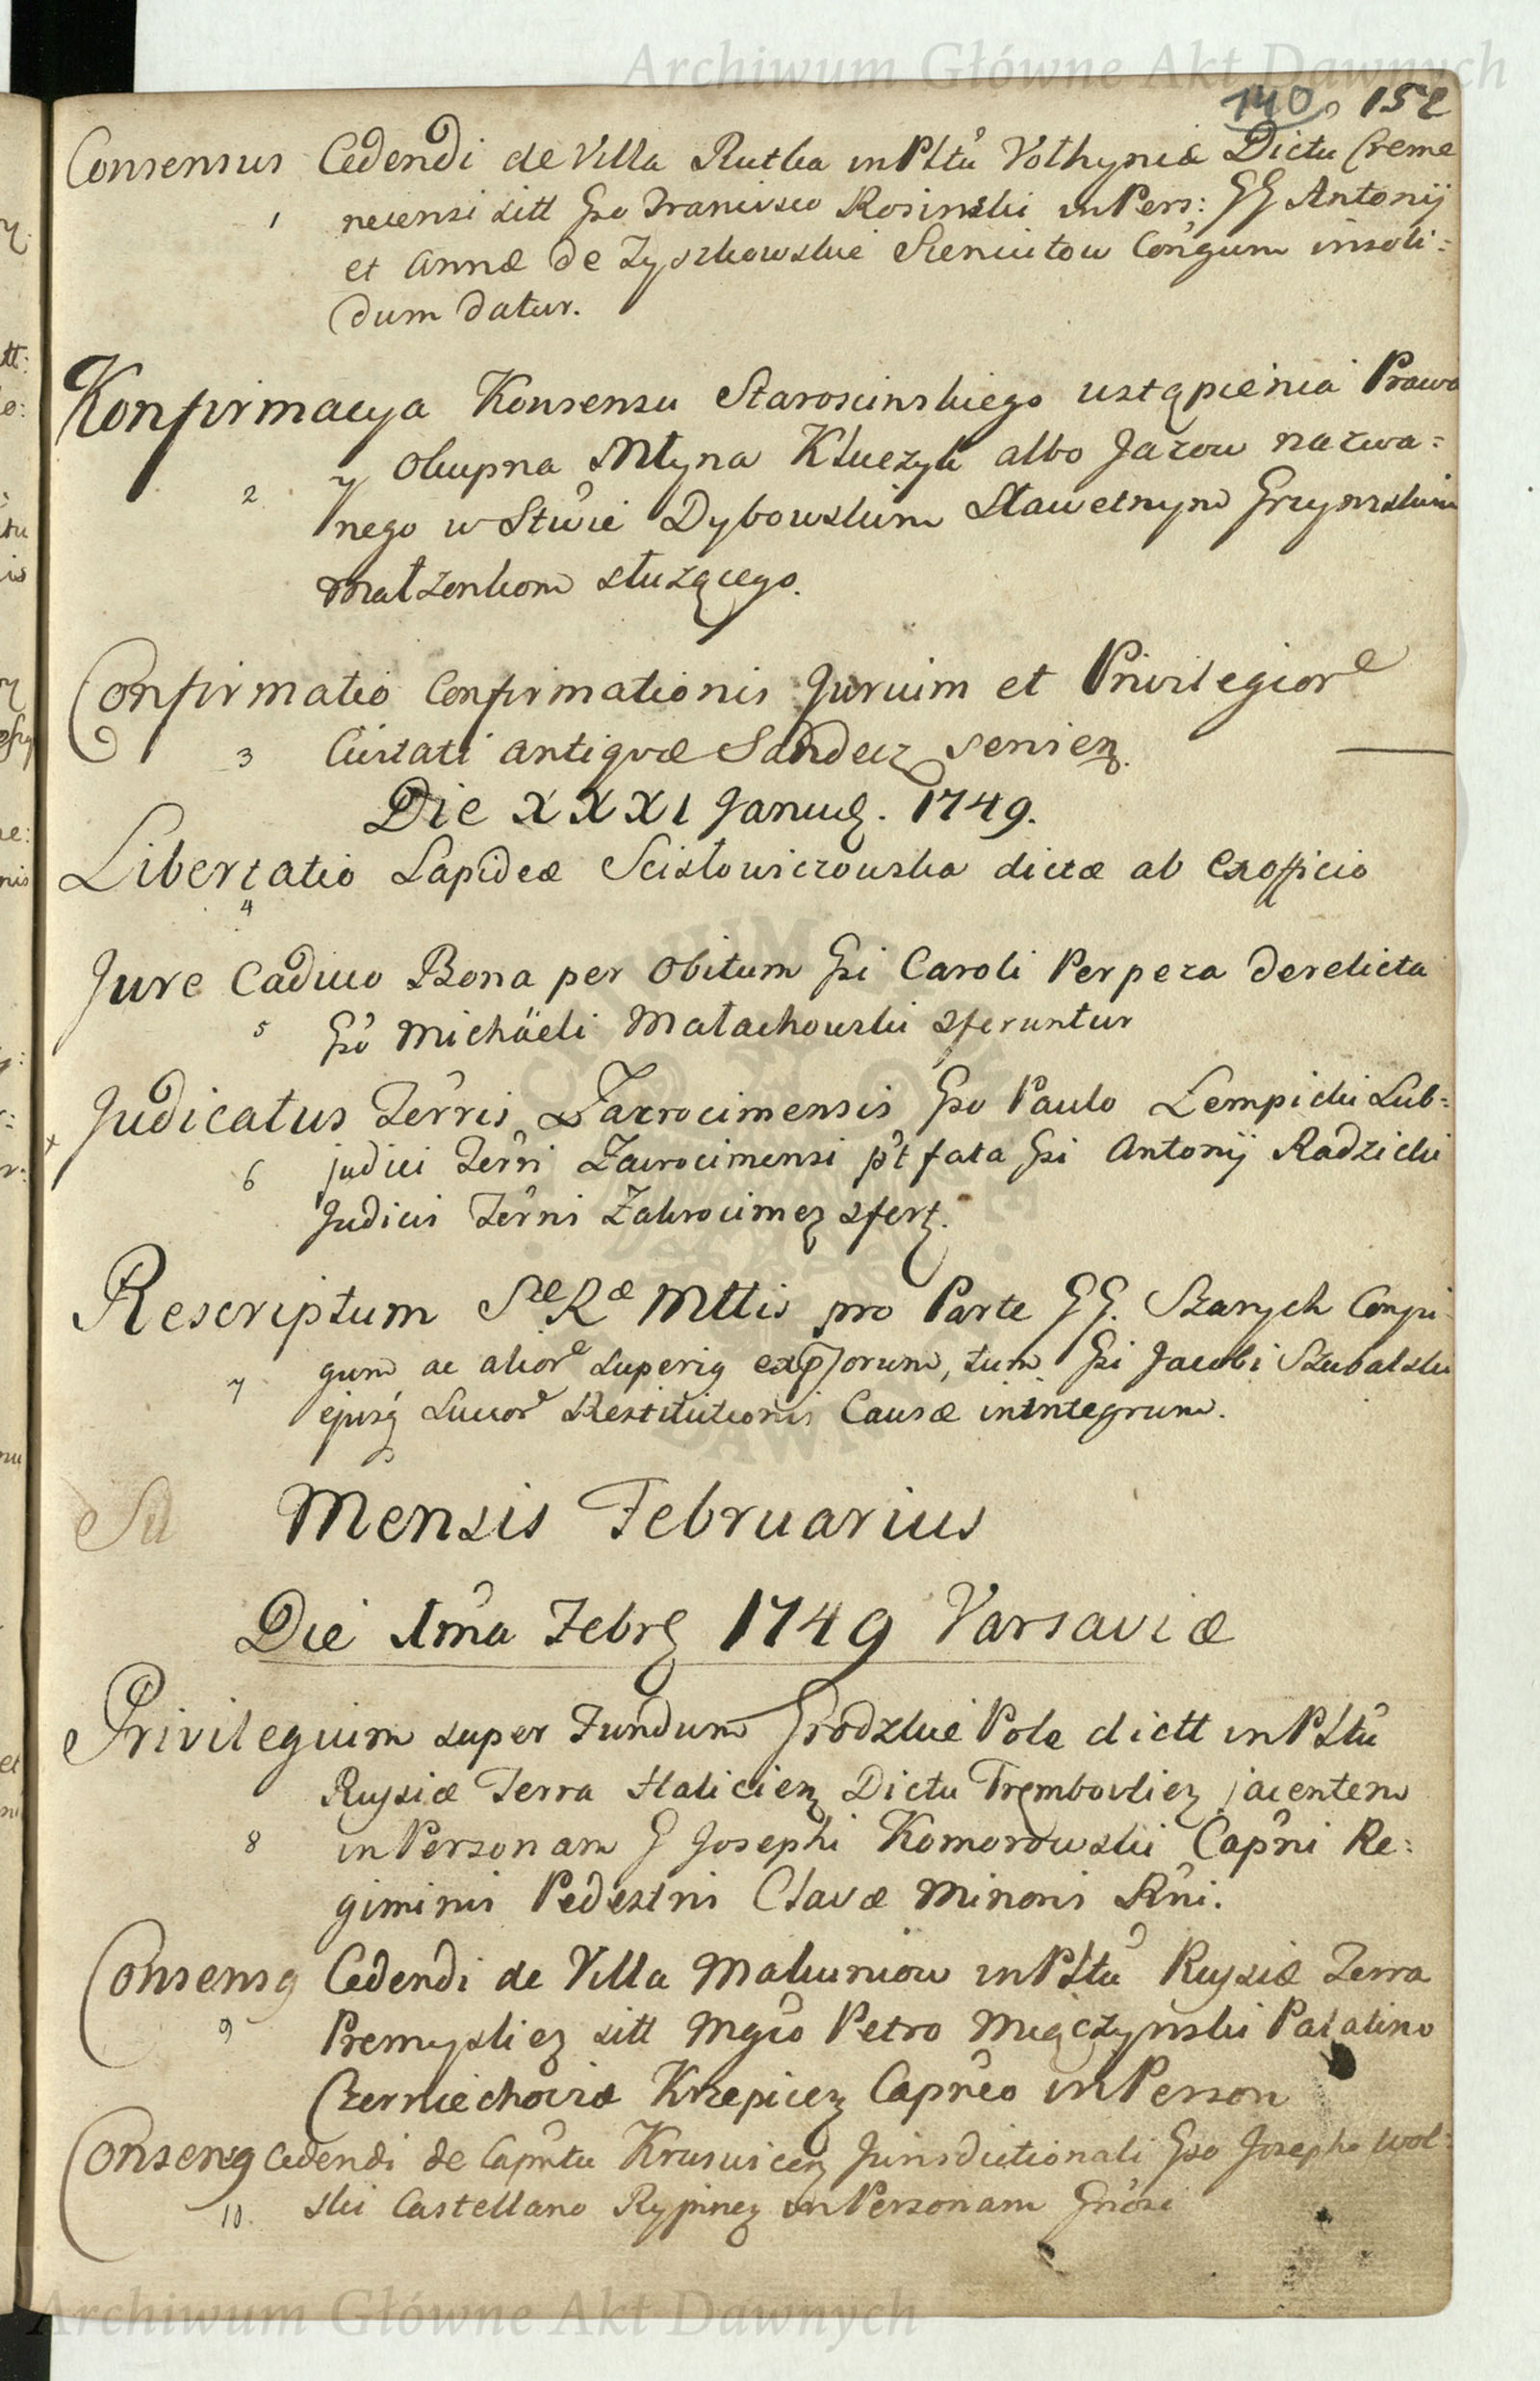 Archiwum Główne Akt Dawnych
140 152
Consensus Cedendi de Villa Rutka in Pltũ Volhyniæ Dictu Creme
1 necensi sitt Gso Francisco Rosinski in Pers: GG Antonij
et Annæ de Zyszkowskie Sieniutow Congum insoli=
dum datur.
Konfirmacya Konsensu Staroscinskiego ustąpienia Prawa
2 y Okupna Młyna Kluczyk albo Jazow nazwa=
nego w Stwie Dybowskim Sławetnym Grzywskim
Małzonkom służącego.
Confirmatio Confirmationis Jurium et Privilegior
3 Civitati antiquæ Sandecz sensien.
Die XXXI Januar. 1749.
Libertatio Lapideæ Scisłowiczowska dictæ ab exofficio
4
Jure Caduco Bona per Obitum Gsi Caroli Perpeza derelicta
5 Gso Michäeli Małachowski sferuntur
Judicatus Terris Zacrocimensis Gso Paulo Lempicki Sub=
6 judici Terri Zacrocimensi p't fata Gsi Antonij Radzicki
Judicis Terrni Zakrocimen sfert.
Rescriptum Sæ Ræ Mttis pro Parte GG. Szarych Conju
7 gum ac alior superig expssorum, tum Gsi Jacobi Szubalski
ejusq Succor Restitutionis Causæ inintegrum.
Mensis Februarius
Die 1ma Febr 1749 Varsaviæ
Privilegium super Fundum Grodzkie Pole dictt in Pltũ
Russiæ Terra Halicien Dictu Trembovlien jacentem
8 in Personam G Josephi Komorowski Capni Re:
giminis Pedestris Clavæ Minoris Rni.
Consensg Cedendi de Villa Makuniow in Pltũ Russiæ Terra
9 Premyslien sitt Mgco Petro Miączynski Palatino
Czerniechoviæ Krzepicen Capneo in Person
Consensg Cedendi de Capntu Kruswicen Jurisdictionali Gso Josepho Wol=
10 ski Castellano Rypinen in Personam Gnosi
Archiwum Główne Akt Dawnych